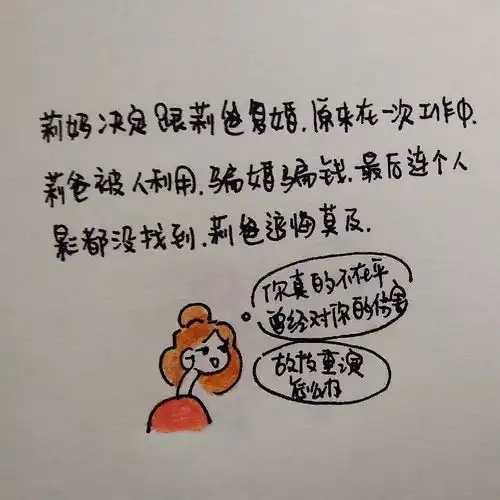 莉妈决定跟莉爸复婚.原来在一次工作中.
莉爸被人利用.骗婚骗钱.最后连个人
影都没找到.莉爸追悔莫及.
你真的不在乎
曾经对你的伤害
故技重演
怎么办